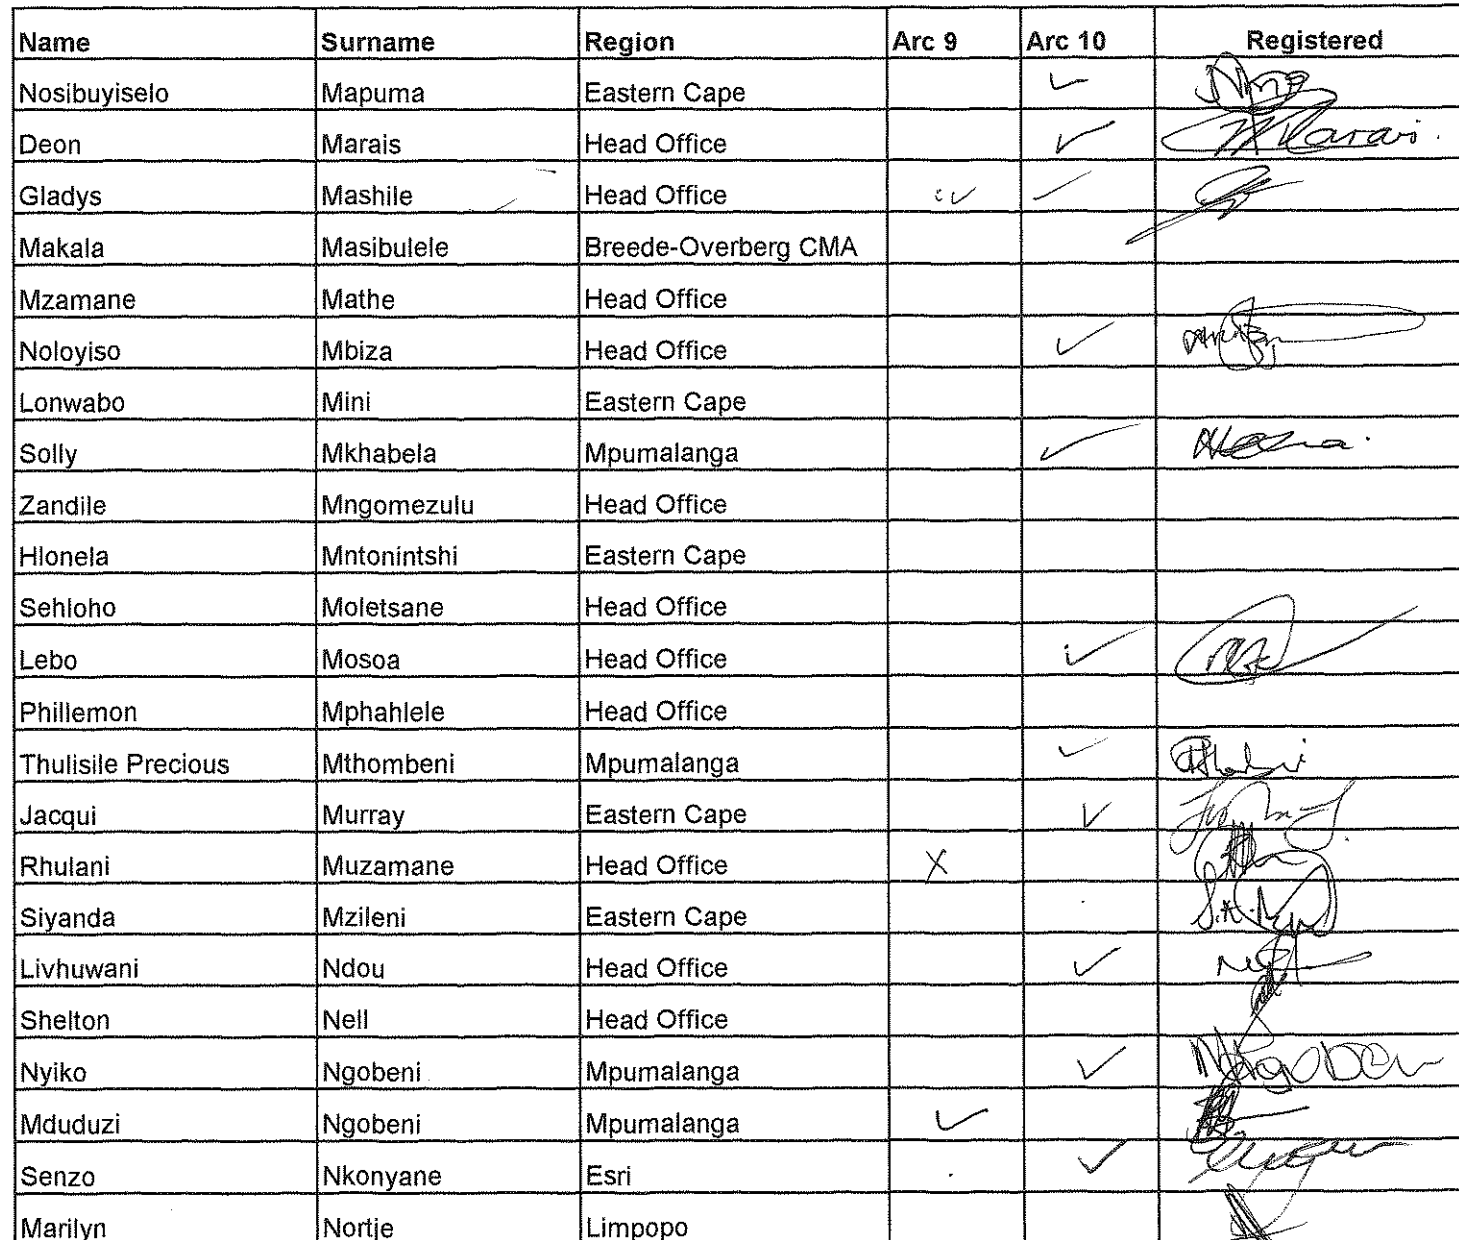 Name Surname Region Arc 9 Arc 10 Registered
Nosibuyiselo Mapuma Eastern Cape ✓
Deon Marais Head Office ✓ Marais.
Gladys Mashile Head Office ✓ ✓
Makala Masibulele Breede-Overberg CMA
Mzamane Mathe Head Office
Noloyiso Mbiza Head Office ✓
Lonwabo Mini Eastern Cape
Solly Mkhabela Mpumalanga ✓
Zandile Mngomezulu Head Office
Hlonela Mntonintshi Eastern Cape
Sehloho Moletsane Head Office
Lebo Mosoa Head Office ✓
Phillemon Mphahlele Head Office
Thulisile Precious Mthombeni Mpumalanga ✓
Jacqui Murray Eastern Cape ✓
Rhulani Muzamane Head Office X
Siyanda Mzileni Eastern Cape
Livhuwani Ndou Head Office ✓
Shelton Nell Head Office
Nyiko Ngobeni Mpumalanga ✓
Mduduzi Ngobeni Mpumalanga ✓
Senzo Nkonyane Esri ✓
Marilyn Nortje Limpopo